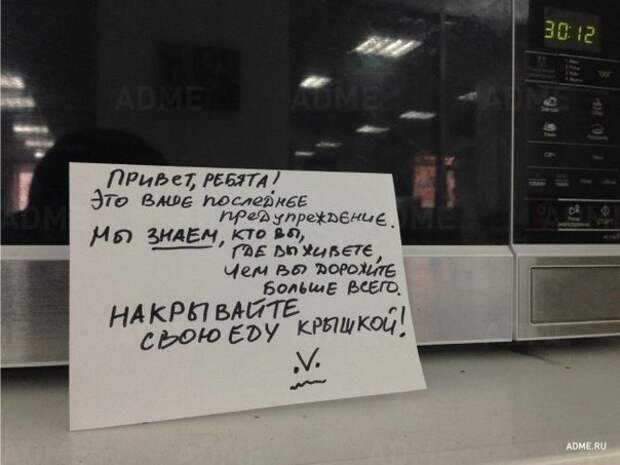 30:12
ADME
ADME
ПРИВЕТ, РЕБЯТА!
ЭТО ВАШЕ ПОСЛЕДНЕЕ
ПРЕДУПРЕЖДЕНИЕ.
МЫ ЗНАЕМ, КТО ВЫ,
ГДЕ ВЫ ЖИВЕТЕ,
ЧЕМ ВЫ ДОРОЖИТЕ
БОЛЬШЕ ВСЕГО.
НАКРЫВАЙТЕ
СВОЮ ЕДУ КРЫШКОЙ!
.V.
ADME.RU